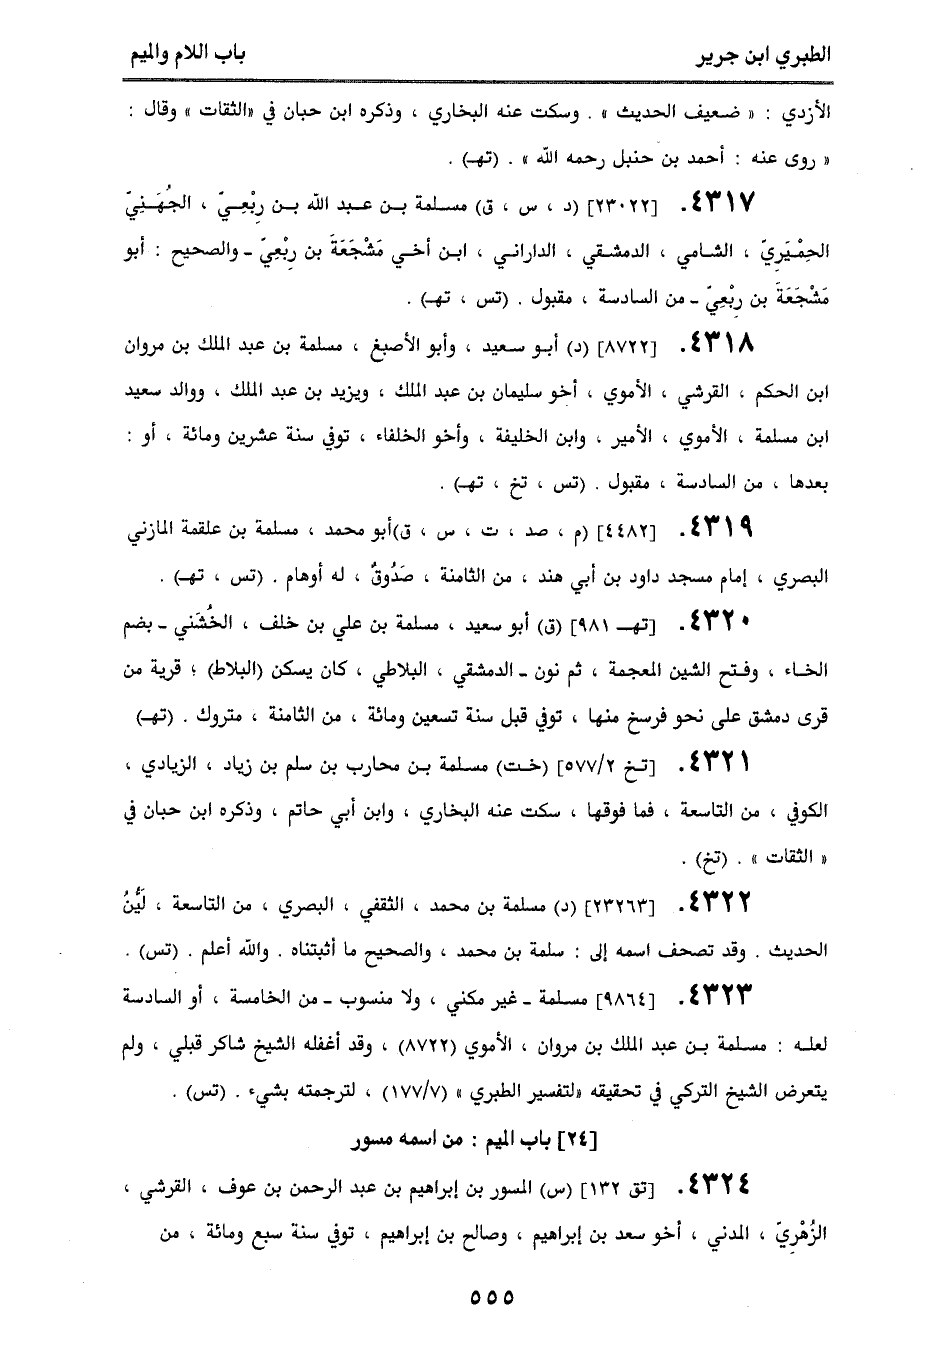 الطبري ابن جرير
باب اللام والميم
الأزدي : « ضعيف الحديث » . وسكت عنه البخاري ، وذكره ابن حبان في «الثقات » وقال :
« روى عنه : أحمد بن حنبل رحمه الله » . (تهـ) .
٤٣١٧. [٢٣٠٢٢] (د ، س ، ق) مسلمة بن عبد الله بن رِبْعِيّ ، الجُهَنِيّ
الحِمْيَرِيّ ، الشامي ، الدمشقي ، الداراني ، ابن أخي مَشْجَعَةَ بن رِبْعِيّ ـ والصحيح : أبو
مَشْجَعَةَ بن رِبْعِيّ ـ من السادسة ، مقبول . (تس ، تهـ) .
٤٣١٨. [٨٧٢٢] (د) أبو سعيد ، وأبو الأصبغ ، مسلمة بن عبد الملك بن مروان
ابن الحكم ، القرشي ، الأموي ، أخو سليمان بن عبد الملك ، ويزيد بن عبد الملك ، ووالد سعيد
ابن مسلمة ، الأموي ، الأمير ، وابن الخليفة ، وأخو الخلفاء ، توفي سنة عشرين ومائة ، أو :
بعدها ، من السادسة ، مقبول . (تس ، تخ ، تهـ) .
٤٣١٩. [٤٤٨٢] (م ، صد ، ت ، س ، ق)أبو محمد ، مسلمة بن علقمة المازني
البصري ، إمام مسجد داود بن أبي هند ، من الثامنة ، صَدُوقٌ ، له أوهام . (تس ، تهـ) .
٤٣٢٠. [تهـ ٩٨١] (ق) أبو سعيد ، مسلمة بن علي بن خلف ، الخُشَني ـ بضم
الخاء ، وفتح الشين المعجمة ، ثم نون ـ الدمشقي ، البلاطي ، كان يسكن (البلاط) ؛ قرية من
قرى دمشق على نحو فرسخ منها ، توفي قبل سنة تسعين ومائة ، من الثامنة ، متروك . (تهـ)
٤٣٢١. [تخ ٥٧٧/٢] (خت) مسلمة بن محارب بن سلم بن زياد ، الزيادي ،
الكوفي ، من التاسعة ، فما فوقها ، سكت عنه البخاري ، وابن أبي حاتم ، وذكره ابن حبان في
« الثقات » . (تخ) .
٤٣٢٢. [٢٣٢٦٣] (د) مسلمة بن محمد ، الثقفي ، البصري ، من التاسعة ، لَيِّنُ
الحديث . وقد تصحف اسمه إلى : سلمة بن محمد ، والصحيح ما أثبتناه . والله أعلم . (تس) .
٤٣٢٣. [٩٨٦٤] مسلمة ـ غير مكني ، ولا منسوب ـ من الخامسة ، أو السادسة
لعله : مسلمة بن عبد الملك بن مروان ، الأموي (٨٧٢٢) ، وقد أغفله الشيخ شاكر قبلي ، ولم
يتعرض الشيخ التركي في تحقيقه «لتفسير الطبري » (١٧٧/٧) ، لترجمته بشيء . (تس) .
[٢٤] باب الميم : من اسمه مسور
٤٣٢٤. [تق ١٣٢] (س) المسور بن إبراهيم بن عبد الرحمن بن عوف ، القرشي ،
الزُهْرِيّ ، المدني ، أخو سعد بن إبراهيم ، وصالح بن إبراهيم ، توفي سنة سبع ومائة ، من
٥٥٥